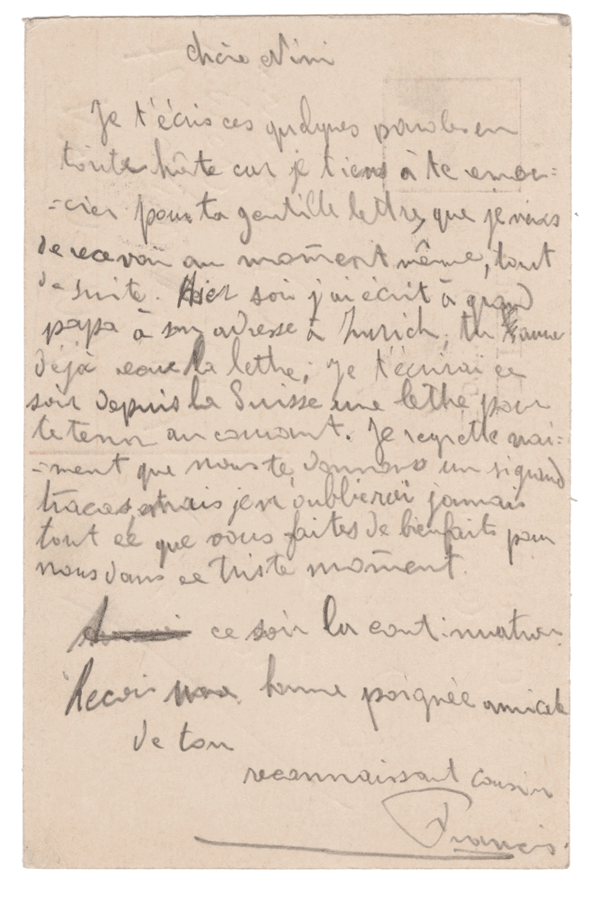 Chère Nini
Je t'écris ces quelques paroles en
toute hâte car je tiens à te remer=
=cier pour ta gentille lettre, que je viens
de recevoir au moment même, tout
de suite. Hier soir j'ai écrit à grand
papa à son adresse à Zurich, tu
déjà la lettre; Je t'écrirai ce
soir depuis la Suisse une lettre pour
te tenir au courant. Je regrette vrai=
=ment que nous te donnons un si grand
tracas, mais je n'oublierai jamais
tout ce que vous faites de bienfaits pour
nous dans ce triste moment.
ce soir la continuation
Recois une bonne poignée amicale
de ton
reconnaissant cousin
Francis.